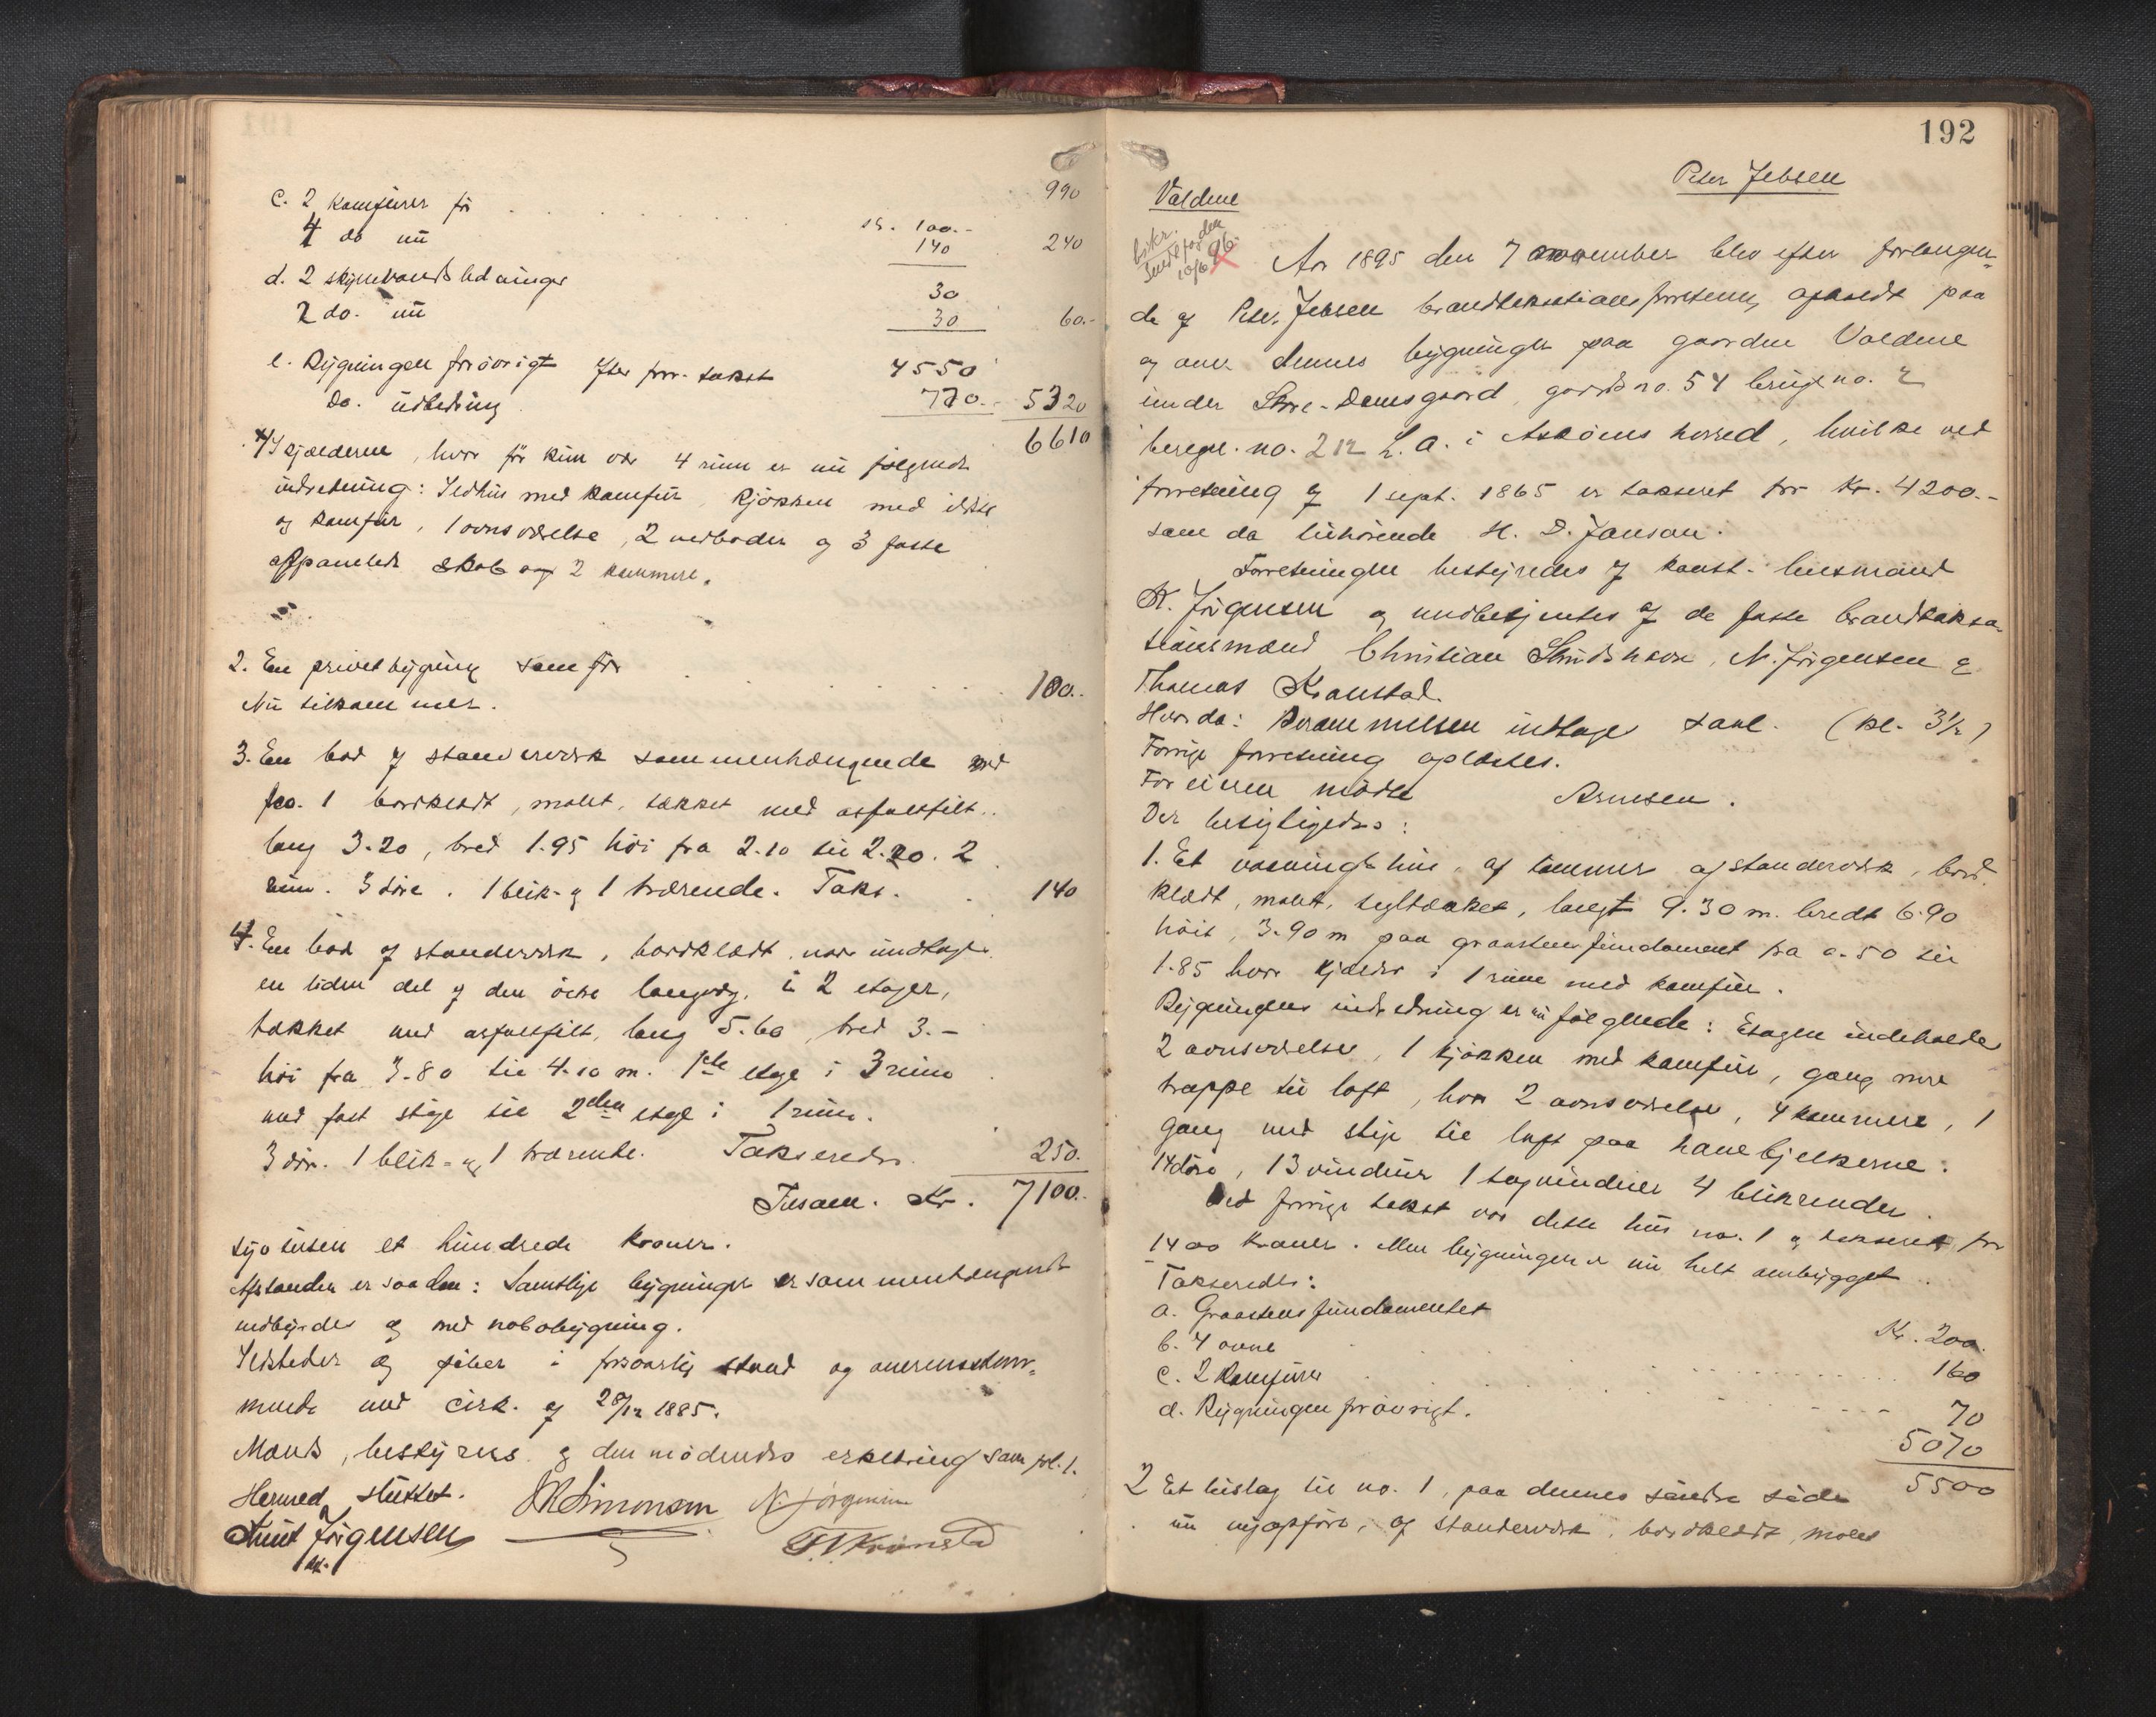 990
c. 2 komfurer før . . . . kr. 100.-
4 do nu 140 240
d. 2 skyllevandsledninger 30
2 do. nu 30 60.-
e. Bygningen forøvrigt efter forr. takst 4550
Do. udbedring 770.- 5320
6610
I kjelderen, hvor før kun var 4 rum er nu følgende
indretning: Ildhus med komfur, kjøkken med ildsted
og komfur, 1 ovnsværelse, 2 vedboder og 3 faste
afpanelede skab og 2 kammere.
2. En privetbygning som før . . . . 100.-
Nu tilkommer.
3. En bod af standerverk sammenhængende med
no. 1 bordklædt, malet, tækket med asfaltfilt.
lang 3.20, bred 1.95 høi fra 2.10 til 2.20. 2
rum. 3 døre. 1 blik- og 1 trærende. Takst. 140
4. En bod af standerverk, bordklædt, naar undtages
en liden del af den østre langvæg, i 2 etager,
tækket med asfaltfilt, lang 5.60, bred 3.-
høi fra 3.80 til 4.10 m. 1ste etage i 3 rum
med fast stige til 2den etage i 1 rum.
3 dør. 1 blik- og 1 trærende. Takseredes. 250.
Tilsam. Kr. 7100.-
syv tusen et hundrede kroner.
Afstanden er saadan: Samtlige bygninger er sammenhængende
indbyrdes og med nabobygning.
Ildsteder og piber i forsvarlig stand og overensstem-
mende med cirk. af 28/12 1885.
Mands, bestyrers og den mødendes erklæring som fol. 1.
Hermed sluttet.
Knut Jørgensen N. Jørgensen
Simonsen T. Kronstad
192
Peter Jebsen
Valdene
Aar 1895 den 7 november blev efter forlangen-
de af Peter Jebsen brandtakstationsforretning afholdt paa
og over dennes bygninger paa gaarden Valdene
under Store-Damsgaard, gaards no. 54 brugs no. 2
beregn. no. 212 L. a. i Askøens herred, hvilke ved
forretning af 1 sept. 1865 er takseret for Kr. 4200.-
som da tilhørende H. D. Janson.
Forretningen bestyredes af konst. lensmand
K. Jørgensen og medbetjentes af de faste brandtaksa-
tionsmænd Christian , N. Jørgensen og
Thomas Kronstad.
Hvorda: Dramnelsen indtages saal. (kl. 3½)
Forrige forretning oplæstes.
For eieren mødte Arnesen.
Der besigtigedes:
1. Et vaaningshus, af tømmer og standerverk, bord-
klædt, malet, teglstækket, langt 9.30 m. bredt 6.90
høit, 3.90 m paa graastensfundament fra 0.50 til
1.85 hvor kjelder i 1 rum med komfur.
Bygningens indredning er nu følgende: Etagen indeholder
2 ovnsværelser, 1 kjøkken med komfur, gang med
trappe til loft, hvor 2 ovnsværelser, 4 kammere, 1
gang med stige til loft paa hanebjelkerne.
14 døre, 13 vinduer 1 tagvindue 4 blikrender.
Ved forrige takst var dette hus no. 1 og takseret for
1400 kroner. Men bygningen er nu helt ombygget.
Takseredes:
a. Graastensfundamentet Kr. 200.
b. 4 ovne 160
c. 2 Komfurer 70
d. Bygningen forøvrigt. 5070
5500
2 Et bislag til no. 1, paa dennes søndre side
nu nyopført, af standerverk, bordklædt, malet